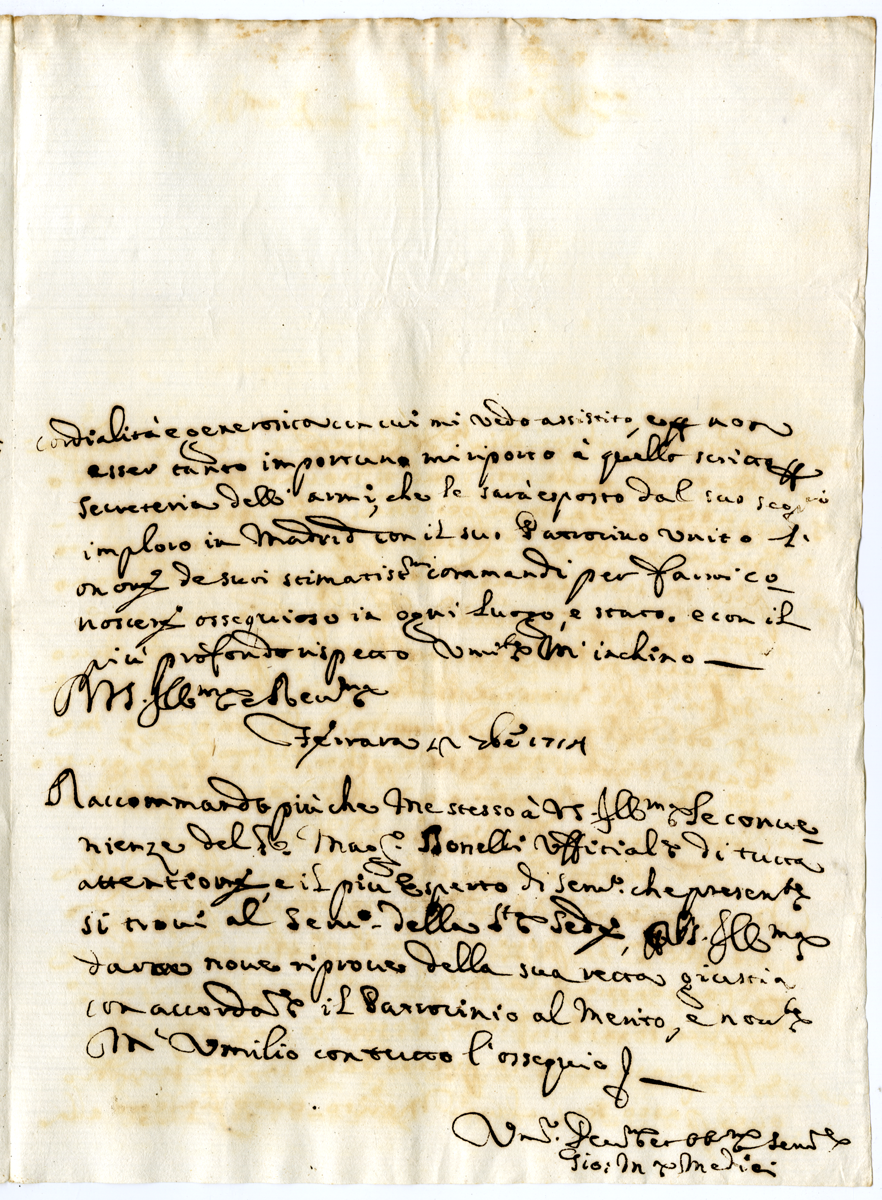 cordialità e generosità con cui mi vedo assistito, e p non
esser tanto importuno mi riporto à quello scritto
secreteria dell'armi, che le sarà esposto dal suo
imploro in Madrid con il suo Patrocino unito l'
onore de suoi stimatis.mi commandi per farmi co_
noscere ossequioso in ogni luogo, e stato. e con il
più profondo rispetto Umil.te M'inchino —
VS. Ill.ma e Reu.ma
Ferrara 7bre
Raccommando più che me stesso à VS. Ill.ma le conue_
nienze del Sr. Mag.r Bonelli Vfficiale di tutta
attentione, e il più esperto di seru.o che present.e
si troui al Seru.o della S.ta Sede, VS. Ill.ma
dare noue riproue della sua retta giustia
con accordare il Patrocinio al Merito, e nou.te
M'Vmilio con tutto l'ossequio —
Um.o Deu.mo et Obb.mo Seru.e
Gio: M.a Medici